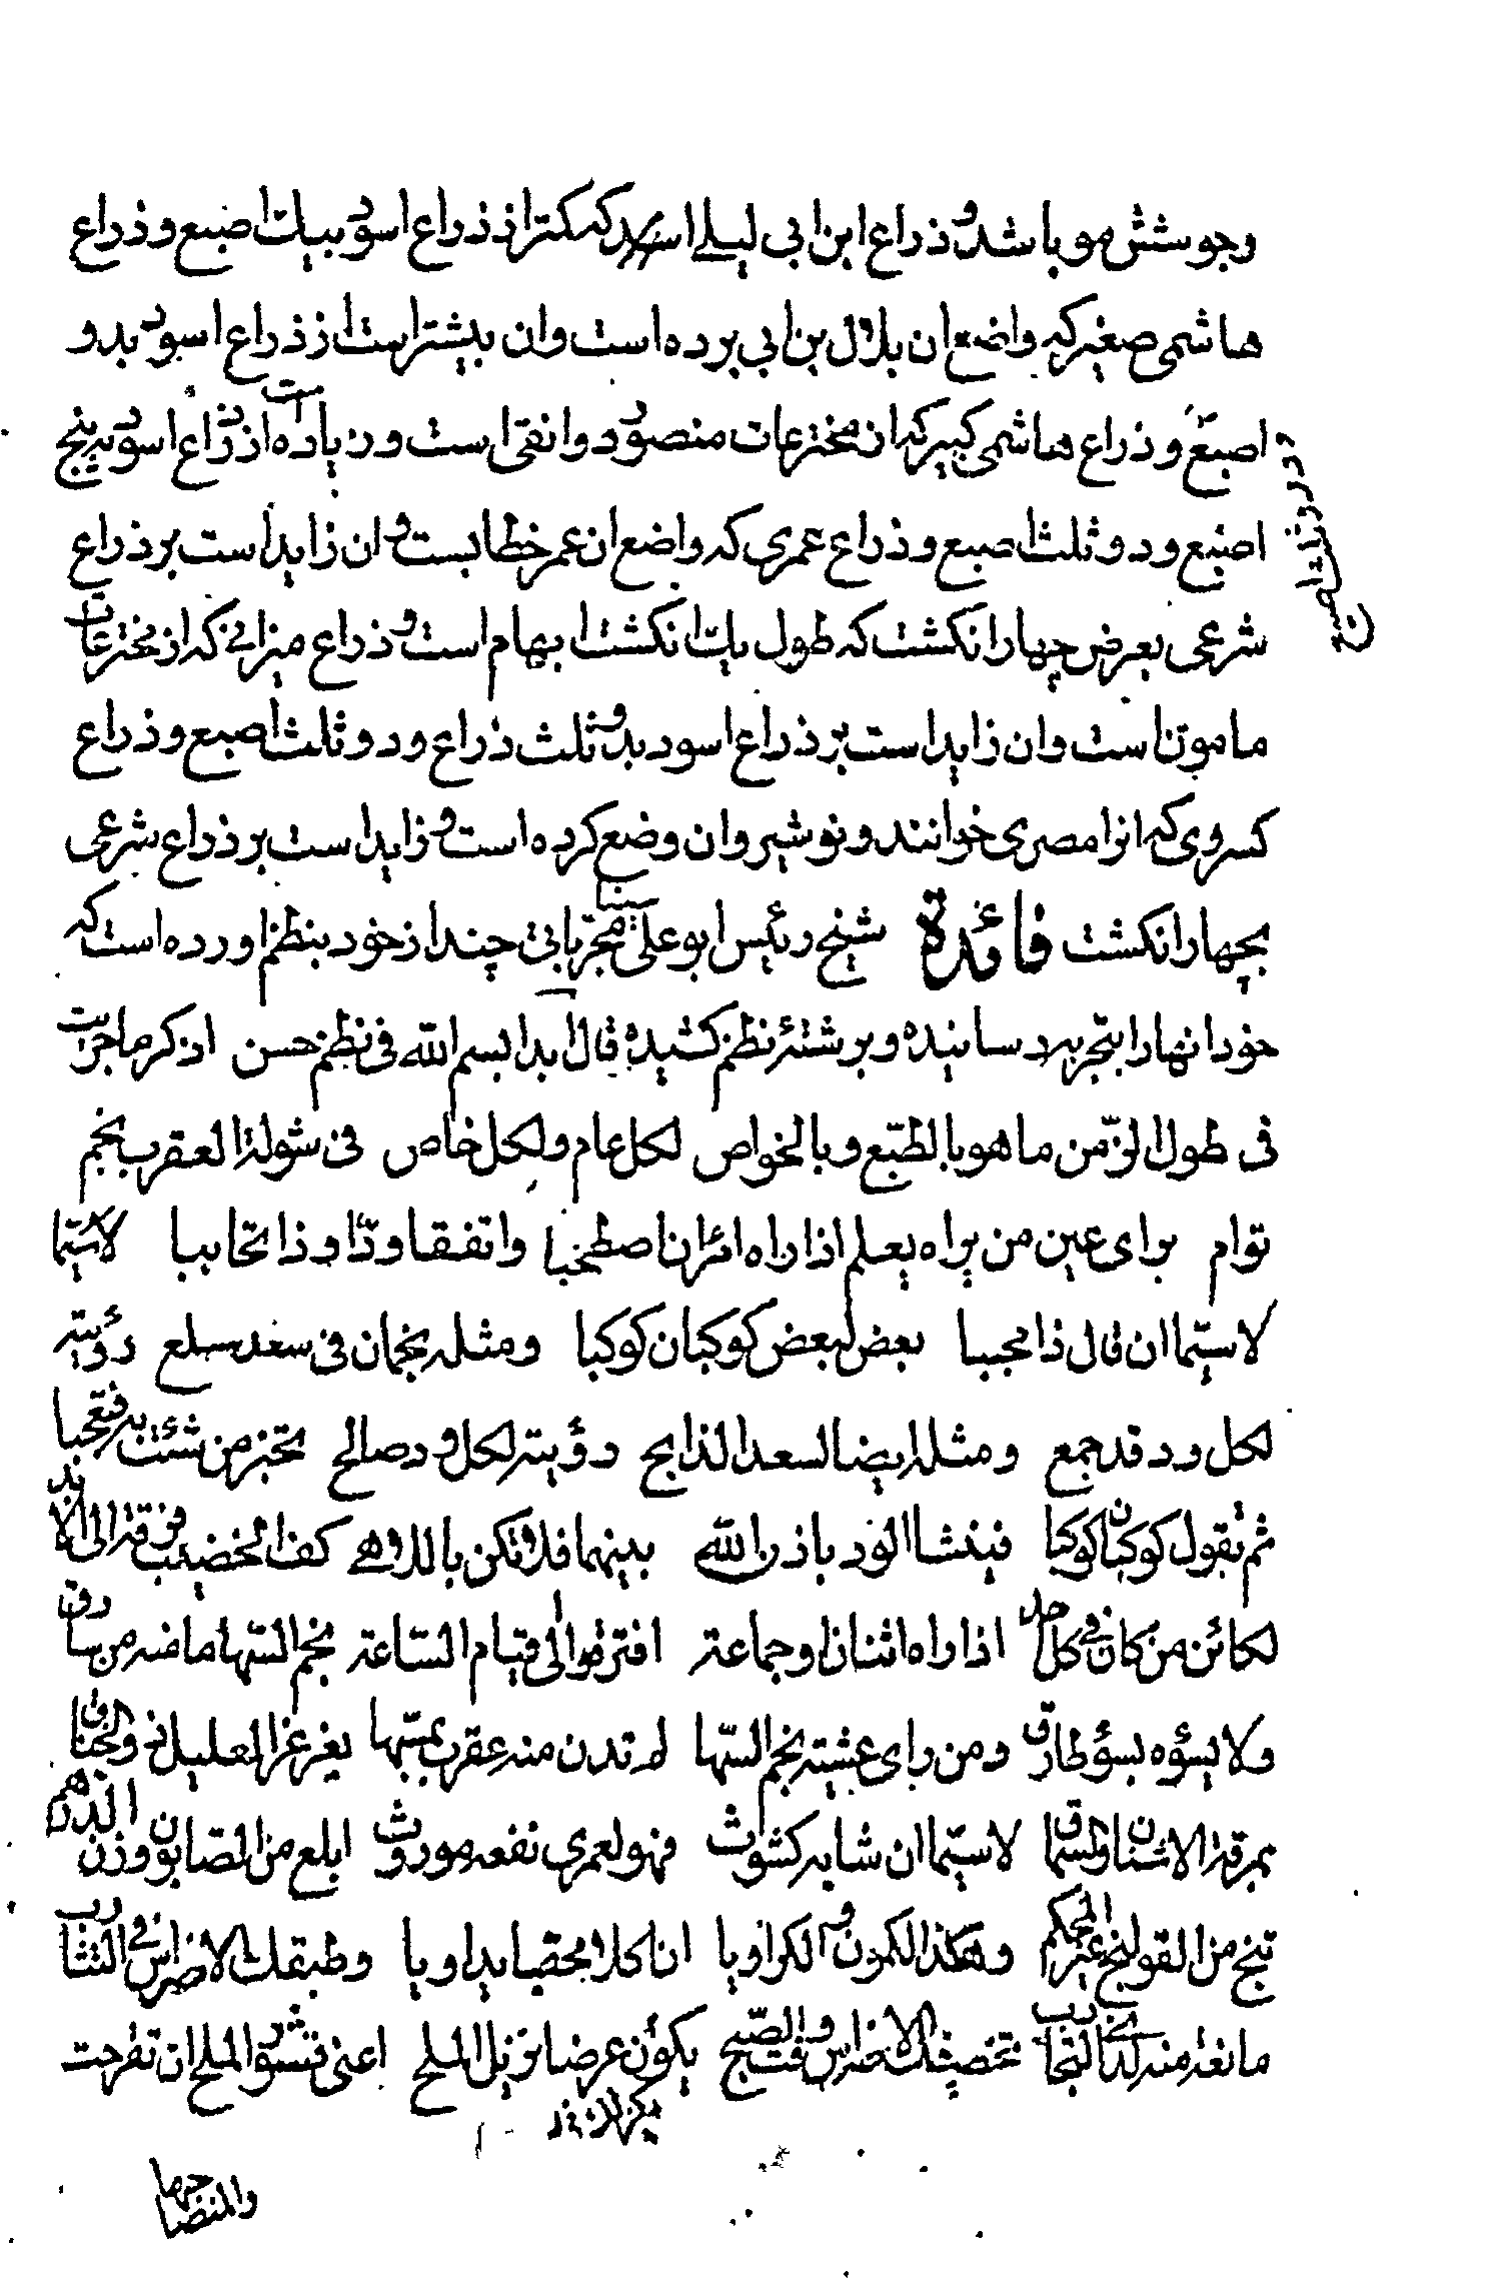 وجو شش مو باشد و ذراع ابن ابی لیلے است که کمتر از ذراع اسود بیک اصبع و ذراع
هاشمی صغیر که واضع ان بلال بن ابی برده است وان بیشتر است از ذراع اسود بدو
اصبع و ذراع هاشمی کبیر که ان مخترعات منصور دوانقی است و زیاده است از ذراع اسود به پنج
اصبع و دو ثلث اصبع و ذراع عمری که واضع ان عمر خطابست و ان زاید است بر ذراع
شرعی بعرض چهار انکشت که طول یک انکشت ابهام است و ذراع میزانے که از مخترعات
مامونست وان زاید است بر ذراع اسود بدو ثلث ذراع و دو ثلث اصبع و ذراع
کسروی که انرا مصری خوانند و نوشیروان وضع کرده است و زاید است بر ذراع شرعی
بچهار انکشت فائدة شیخ رئیس ابو علی سینا مجرباتی چند از خود بنظم اورده است که
خود انها را بتجربه رسانیده و برشتهٔ نظم کشیده قال ابدا بسم الله فی نظم حسن اذکر ما جربت
فی طول الزمن ما هو بالطبع و بالخواص لکل عام ولکل خاص فی شولة العقرب نجم
توام براى عین من یراه یعلم اذا راه اثران اصطحبا واتفقا ودّا وذا تحاببا لاسیّما
لاسیّما ان قال ذا مجببا بعض لبعض کوکبان کوکبا ومثله نجمان فی سعد بلع رؤیته
لکل ود قد جمع ومثله ایضا لسعد الذابح رؤیته لکل ود صالح تختبر من شئت به فتعجبا
ثم تقول کوکبان کوکبا فینشا الود باذن الله بینهما فلا تکن باللاهے کف الخضیب فرقة الى الابد
لکائن من کان فی کل حد اذا راه اثنان او جماعة افترقوا الى قیام الساعة نجم السّها مامنه من سارق
ولا یسؤه بسؤ طارق ومن رای عشیّة نجم السّها لم تدن منه عقرب یمسّها یغرغر العلیل فی الخناق
بمرقة الاشنان والسماق لاسیّما ان شابه کشوث فهو لعمری نفعه موروث ابلع من الصابون وزن الدرهم
تنج من القولنج غیر المحکم وهکذا الکمون و الکراویا ان اکلا بمحصبا یداویا وطبقک الاضراس فی التثاوب
ما نعة منه لدی التجارب تخصیصک الاضراس و الصبح یکون عرضا تزیل الملح اعنی
والمنضاجها